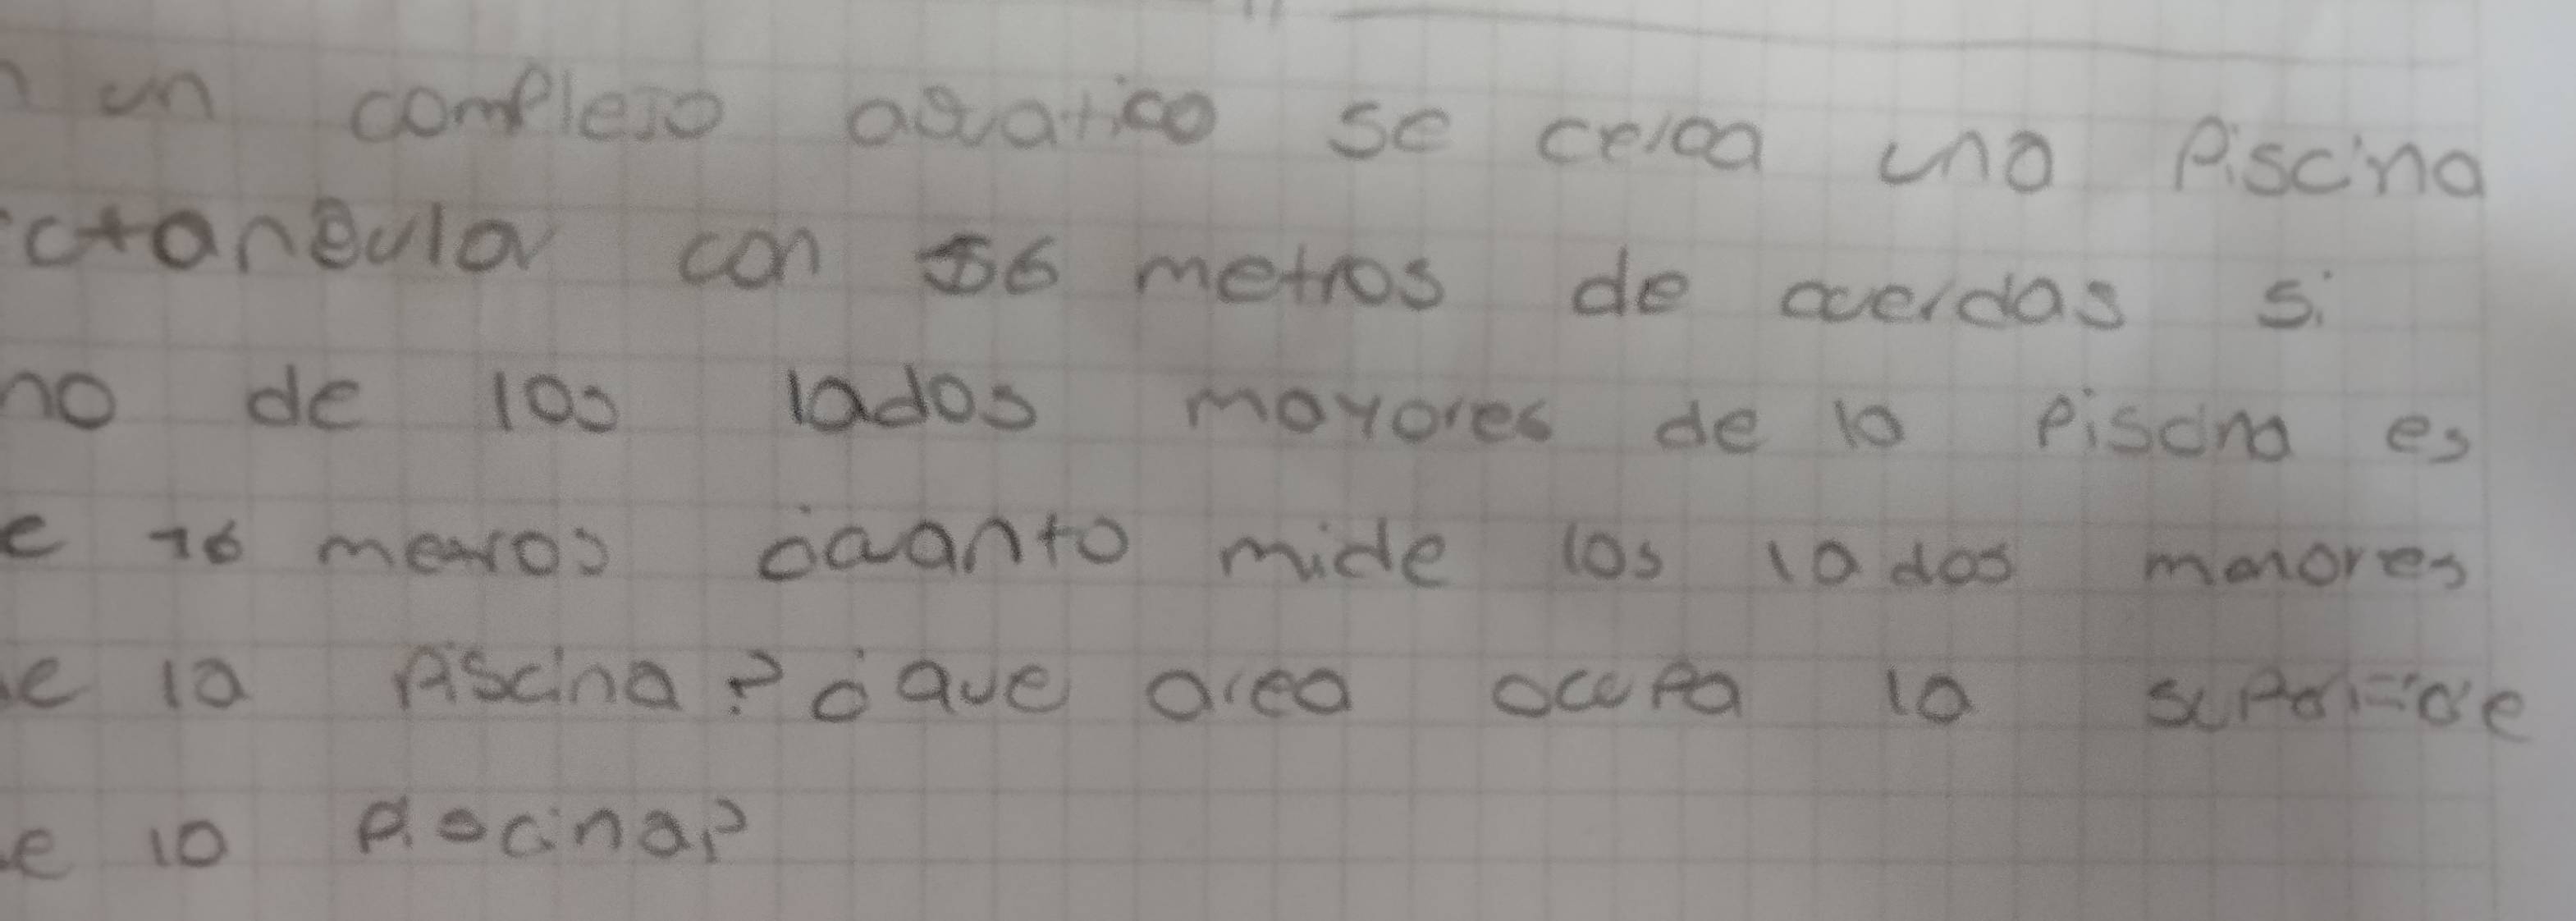 n un complejo aquatico se cerca una piscina
ctangular con 56 metros de cuerdas si
no de los lados mayores de la piscina es
e 16 metros ¿cuanto mide los lados menores
de la piscina? ¿que area ocupa la superficie
de la piscina?